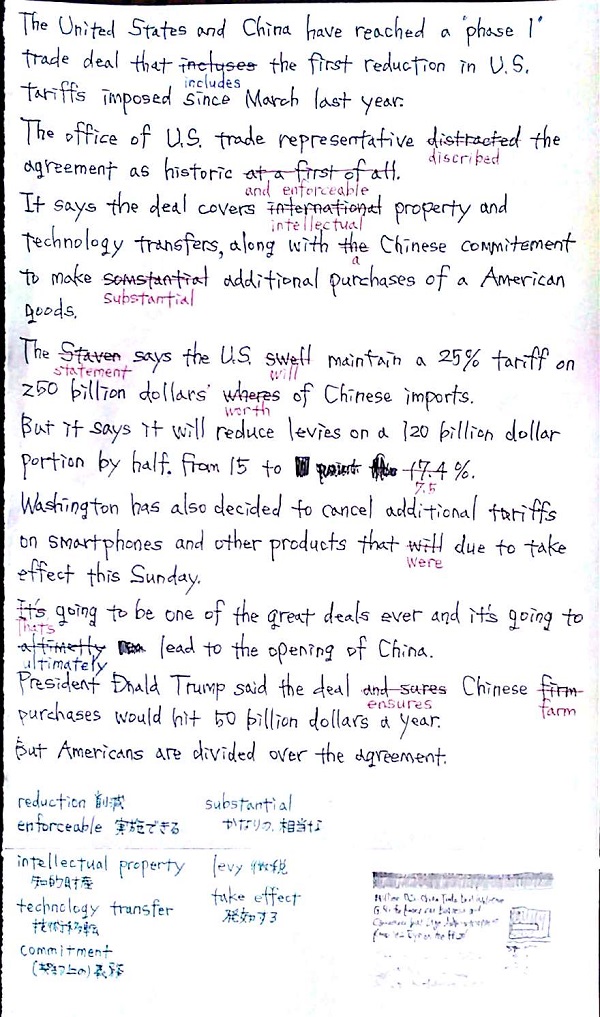 The United States and China have reached a "phase 1"
trade deal that incluses the first reduction in U.S.
includes
tariffs imposed since March last year.
The office of U.S. trade representative distracted the
discribed
agreement as historic at a first of all.
and enforceable
It says the deal covers international property and
intellectual
technology transfers, along with the Chinese commitement
a
to make somstantial additional purchases of a American
substantial
goods.
The Staven says the U.S. swell maintain a 25% tariff on
statement will
250 billion dollars' wheres of Chinese imports.
worth
But it says it will reduce levies on a 120 billion dollar
portion by half. from 15 to point 17.4%.
7.5
Washington has also decided to cancel additional tariffs
on smartphones and other products that will due to take
were
effect this Sunday.
It's going to be one of the great deals ever and it's going to
That's
altimetly lead to the opening of China.
ultimately
President Dnald Trump said the deal and sures Chinese firm
ensures farm
purchases would hit 50 billion dollars a year.
But Americans are divided over the agreement.
reduction 削減 substantial
enforceable 実施できる かなりの、相当な
intellectual property levy 徴税
知的財産 take effect
technology transfer 発効する
技術移転
commitment
(契約上の)義務